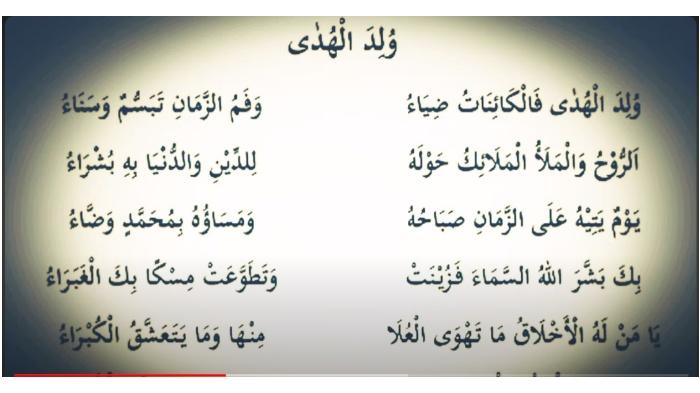 وُلِدَ الْهُدٰى
وُلِدَ الْهُدٰى فَالْكَائِنَاتُ ضِيَاءُ وَفَمُ الزَّمَانِ تَبَسُّمٌ وَسَنَاءُ
اَلرُّوْحُ وَالْمَلَأُ الْمَلَائِكُ حَوْلَهُ لِلدِّيْنِ وَالدُّنْيَا بِهِ بُشْرَاءُ
يَوْمٌ يَتِيْهُ عَلَى الزَّمَانِ صَبَاحُهُ وَمَسَاؤُهُ بِمُحَمَّدٍ وَضَّاءُ
بِكَ بَشَّرَ اللهُ السَّمَاءَ فَزُيِّنَتْ وَتَطَوَّعَتْ مِسْكًا بِكَ الْغَبَرَاءُ
يَا مَنْ لَهُ الْأَخْلَاقُ مَا تَهْوَى الْعُلَا مِنْهَا وَمَا يَتَعَشَّقُ الْكُبْرَاءُ